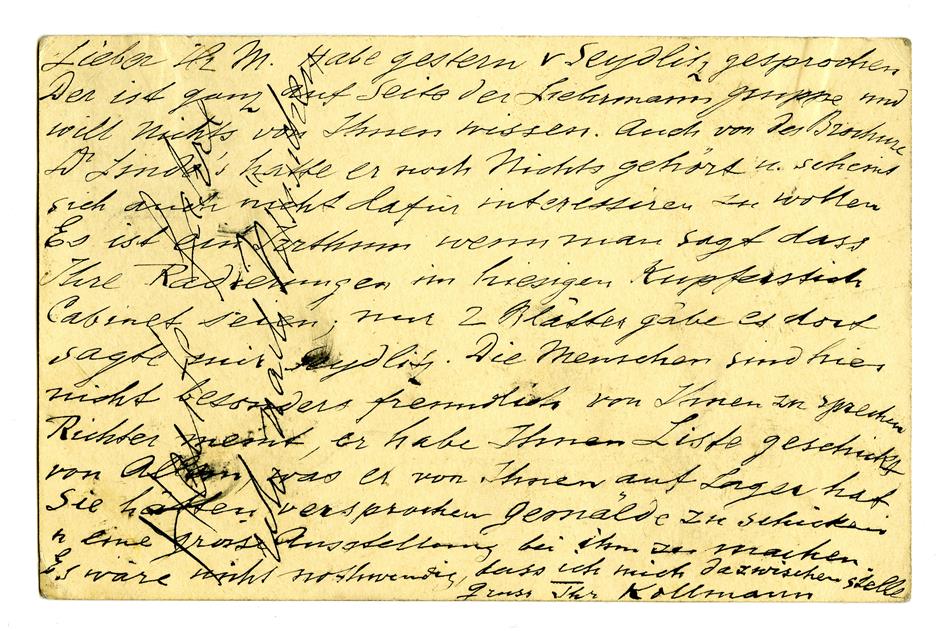 Lieber Hr M. Habe gestern v Seydlitz gesprochen
Der ist ganz auf Seite der Liebermann gruppe und
will Nichts von Ihnen wissen. Auch von der Brochure
Dr Linde's hatte er noch Nichts gehört u. scheint
sich auch nicht dafür interessiren zu wollen
Es ist ein Irrthum wenn man sagt dass
Ihre Radierungen im hiesigen Kupferstich
Cabinet seien, nur 2 Blätter gäbe es dort
sagte mir Seydlitz. Die Menschen sind hier
nicht besonders freundlich von Ihnen zu sprechen
Richter meint, er habe Ihnen Liste geschickt
von Allem was er von Ihnen auf Lager hat
Sie hätten versprochen Gemälde zu schicken
u eine grosse Ausstellung bei ihm zu machen
Es wäre nicht nothwendig, dass ich mich dazwischen stelle
Gruss Ihr Kollmann
nach